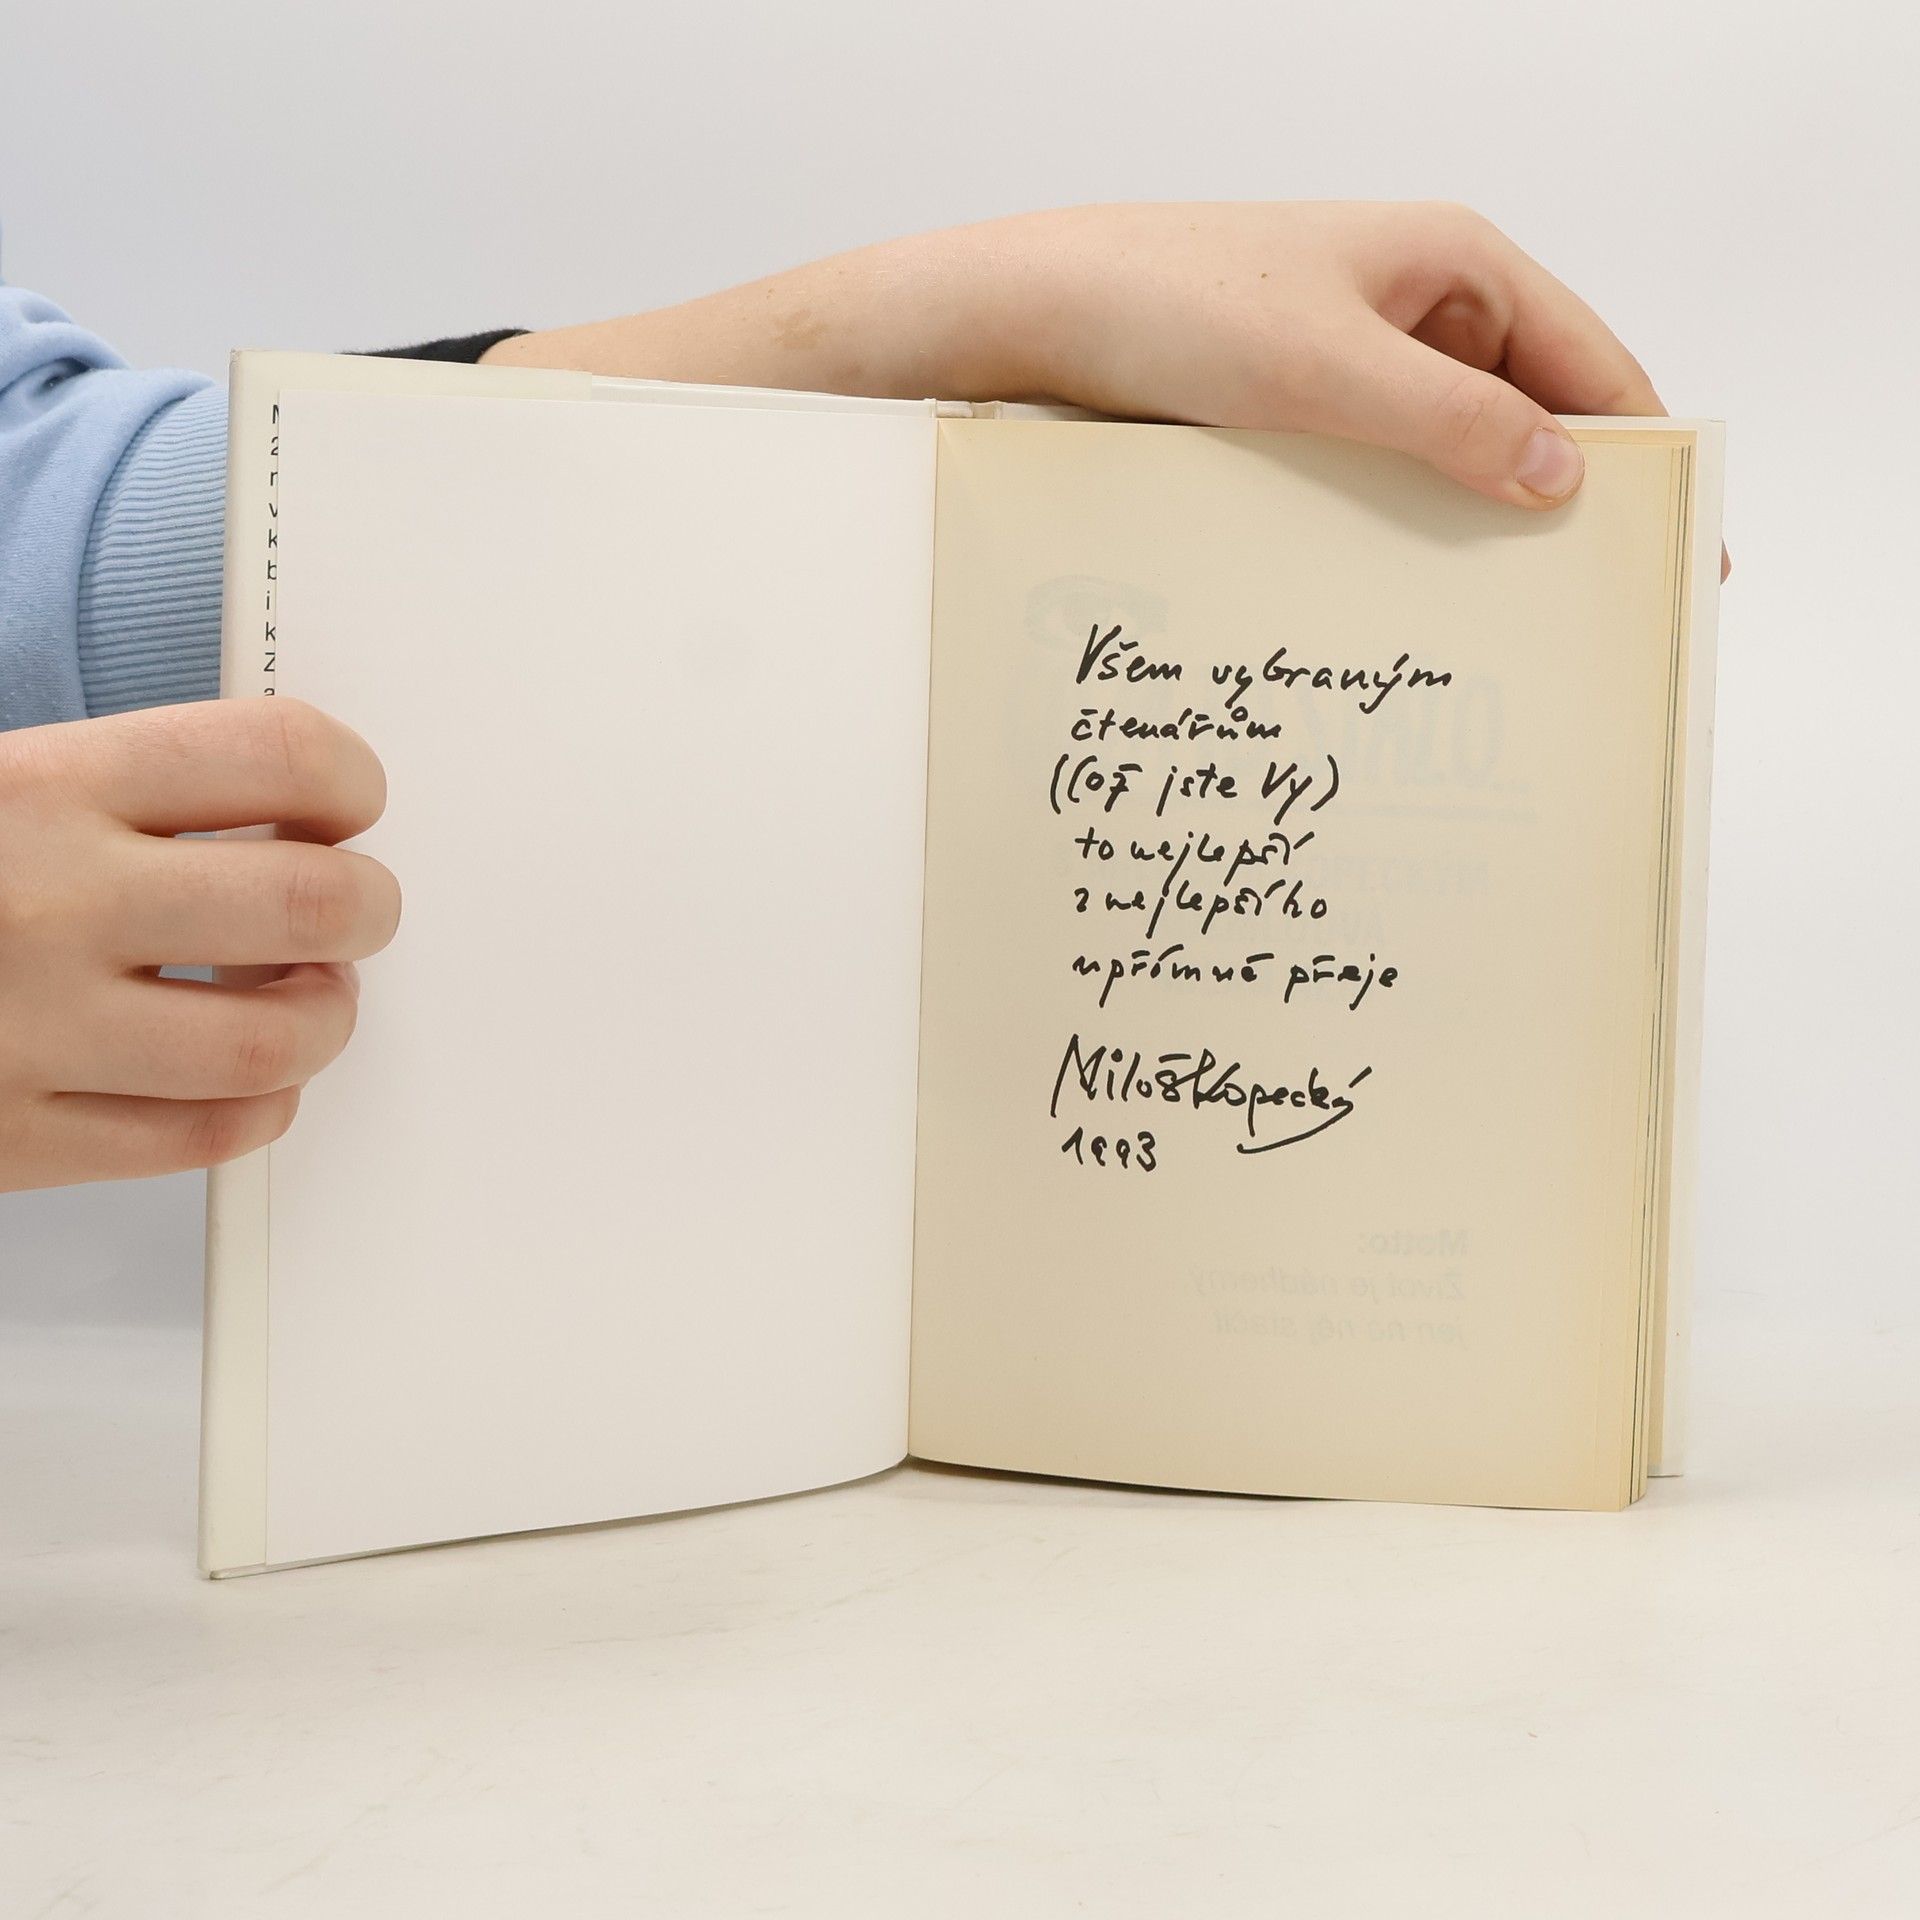 M
a
n
v
k
b
i
k
Z
a
Všem vybraným
čtenářům
(Což jste Vy)
to nejlepší
z nejlepšího
upřímně přeje
Miloš Kopecký
1993
Motto:
Život je nádherný,
jen na něj stačit